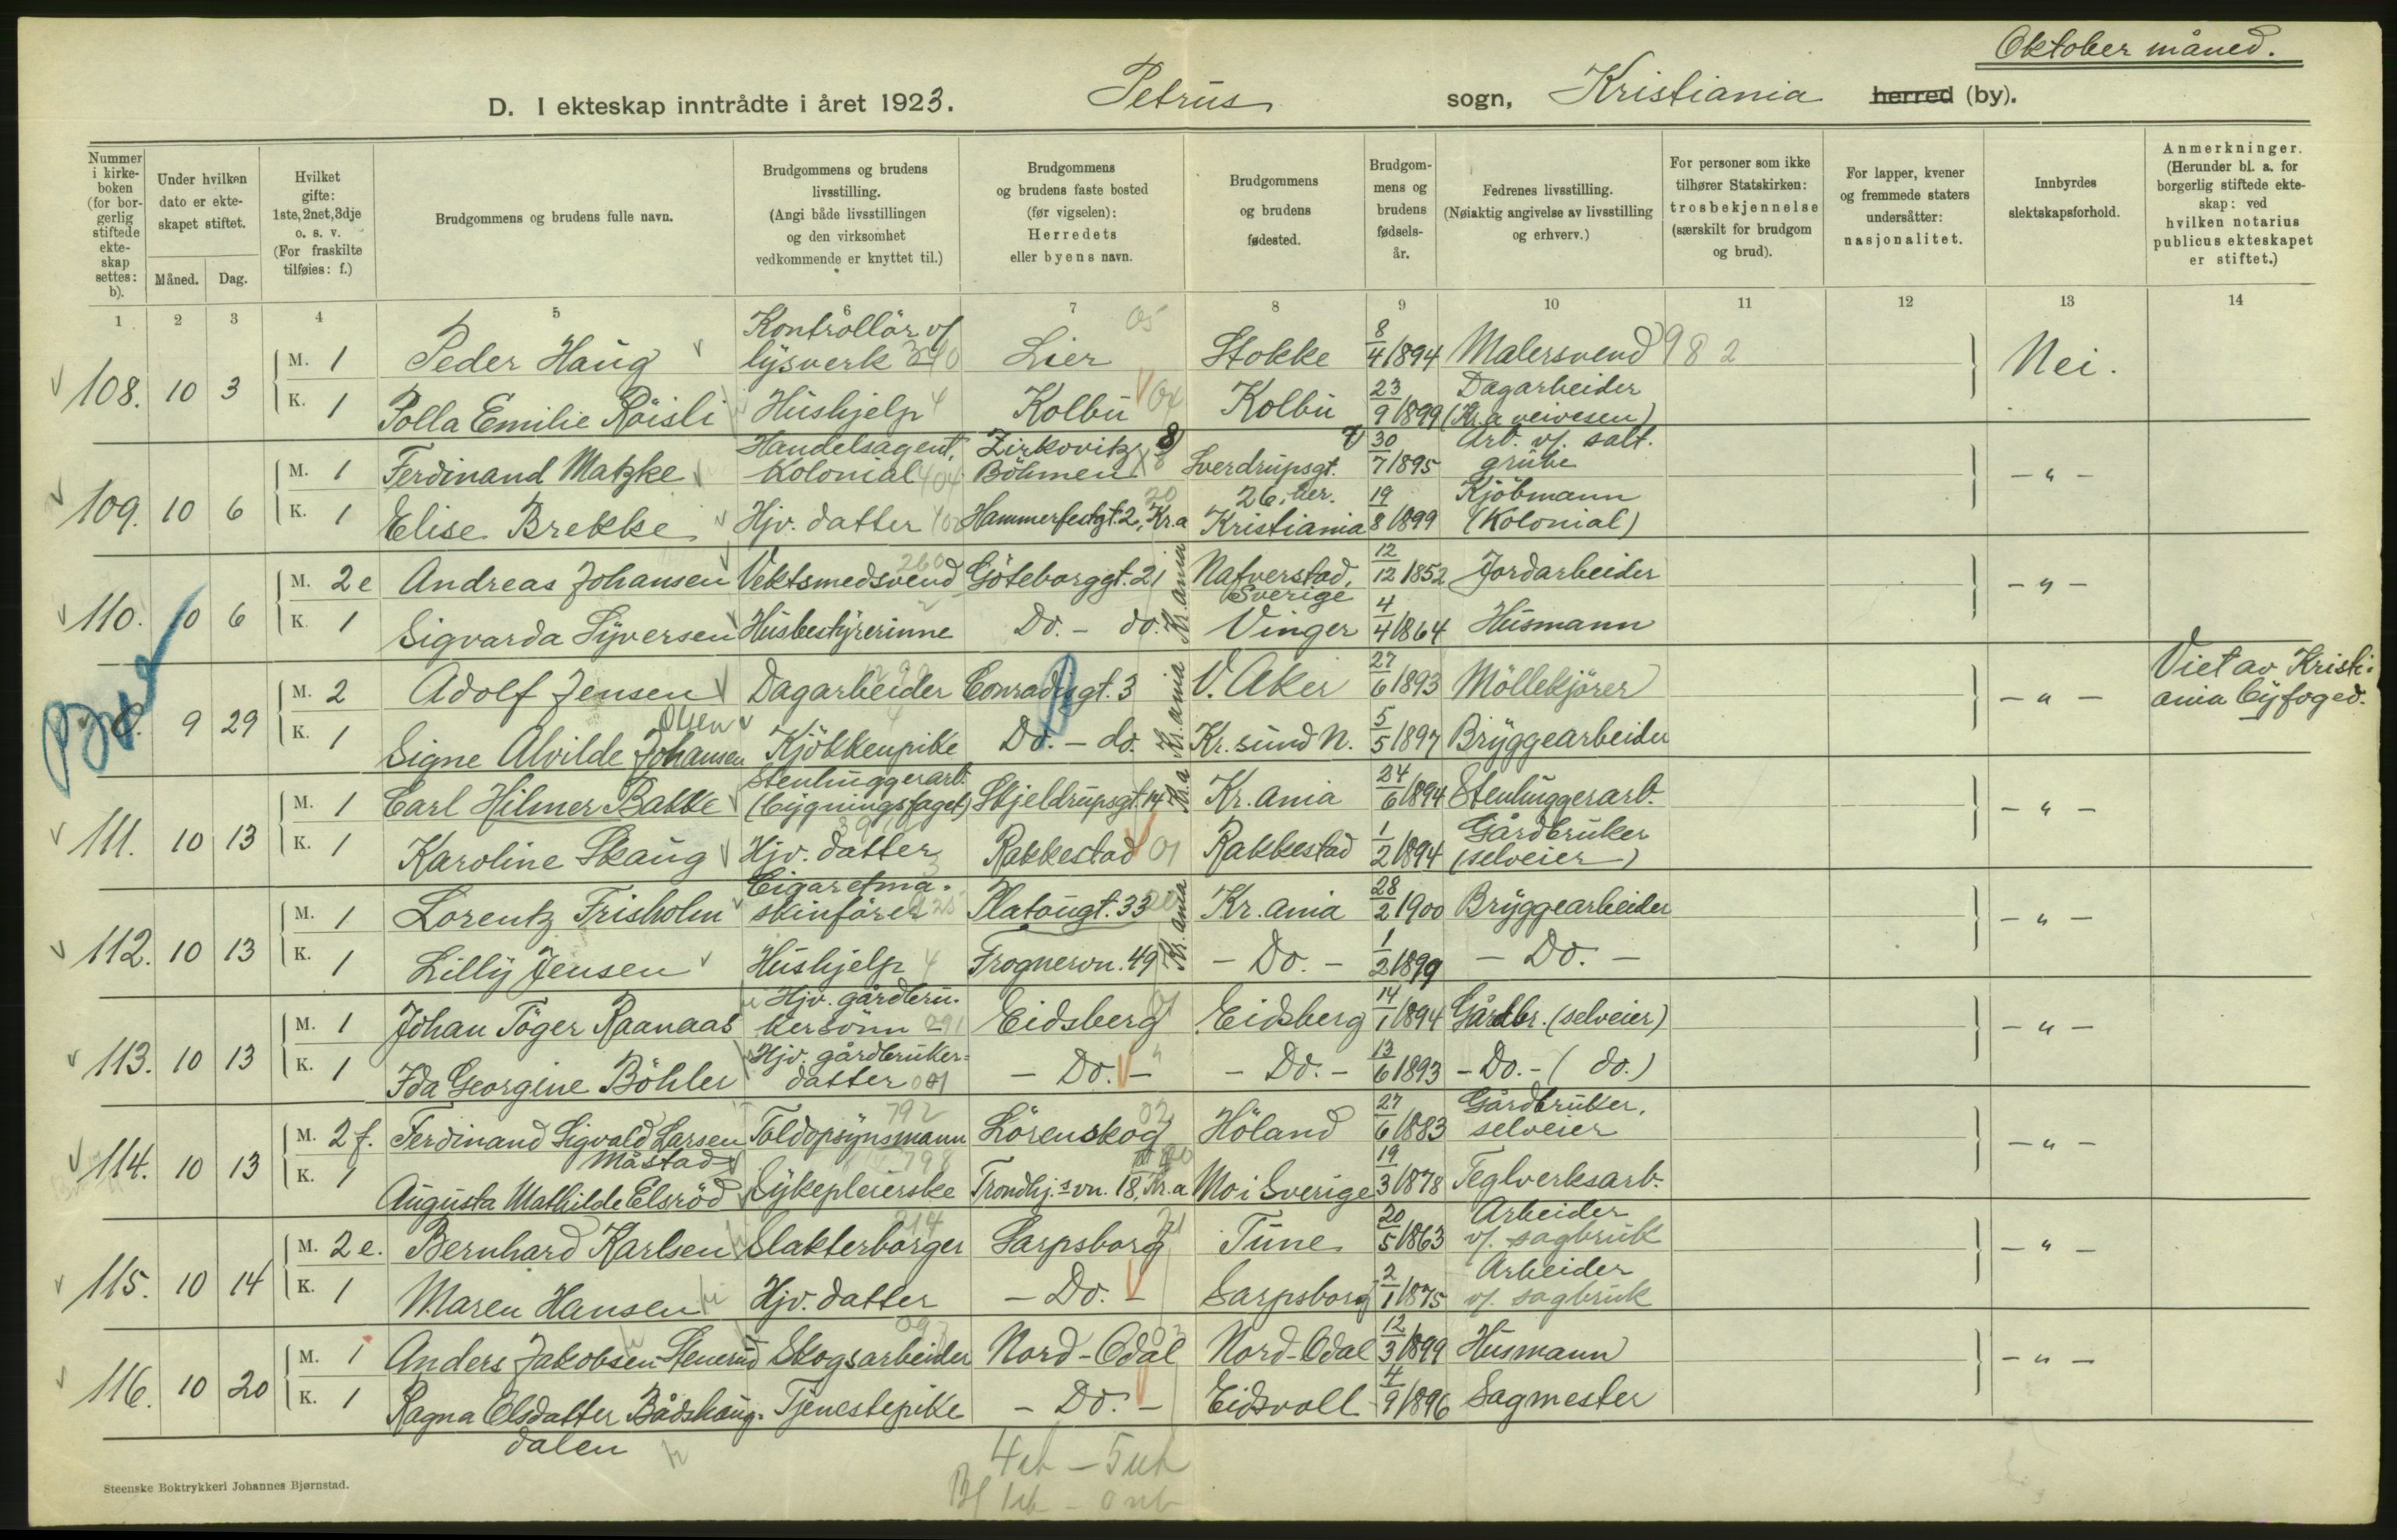 Oktober måned.
D. I ekteskap inntrådte i året 1923. Petrus sogn, Kristiania herred (by).
Nummer i kirkeboken (for borgerlig stiftede ekteskap settes: b).
Under hvilken dato er ekteskapet stiftet.
Måned. Dag.
Hvilket gifte: 1ste, 2net, 3dje o. s. v. (For fraskilte tilføies: f.)
Brudgommens og brudens fulle navn.
Brudgommens og brudens livsstilling. (Angi både livsstillingen og den virksomhet vedkommende er knyttet til.)
Brudgommens og brudens faste bosted (før vigselen): Herredets eller byens navn.
Brudgommens og brudens fødested.
Brudgommens og brudens fødselsår.
Fedrenes livsstilling. (Nøiaktig angivelse av livsstilling og erhverv.)
For personer som ikke tilhører Statskirken: trosbekjennelse (særskilt for brudgom og brud).
For lapper, kvener og fremmede staters undersåtter: nasjonalitet.
Innbyrdes slektskapsforhold.
Anmerkninger. (Herunder bl. a. for borgerlig stiftede ekteskap: ved hvilken notarius publicus ekteskapet er stiftet.)
1 2 3 4 5 7 8 9 10 11 12 13 14
108. 10 3 M. 1 Peder Haug Kontrollör v/ lysverk 340 Lier 05 Stokke 8/4 1894 Malersvend 982 Nei.
K. 1 Polla Emilie Röisli Hushjelp Kolbu 04 Kolbu 23/9 1899 Dagarbeider (Kr.a veivesen)
109. 10 6 M. 1 Ferdinand Matzke Handelsagent, Kolonial 404 Zirkovitz Böhmen 8 Sverdrupsgt. 26, her. 30/7 1895 Arb. v/. salt. grube - " -
K. 1 Elise Brekke Hjv. datter Hammerfestgt. 2, Kr.a 20 Kristiania 19/8 1899 Kjöbmann (Kolonial)
110. 10 6 M. 2 e Andreas Johansen Vektsmedsvend 260 Göteborggt. 21 Kr.ania Nafverstad, Sverige 12/12 1852 Jordarbeider - " -
K. 1 Sigvarda Syversen Husbestyrerinne Do. - do. Vinger 4/4 1864 Husmann
9 29 M. 2 Adolf Jensen Dagarbeider Conradisgt. 3 Kr.ania V. Aker 27/6 1893 Möllekjörer - " - Viet av Kristiania byfoged.
K. 1 Signe Alvilde Johansen Olsen Kjökkenpike Do. - do. Kr. sund N. 5/5 1897 Bryggearbeider
111. 10 13 M. 1 Carl Hilmer Bakke Stenhuggerarb. (bygningsfaget) Skjeldrupsgt. 14 Kr.a Kr.ania 24/6 1894 Stenhuggerarb. - " -
K. 1 Karoline Skaug Hjv. datter Rakkestad 01 Rakkestad 1/2 1894 Gårdbruker (selveier)
112. 10 13 M. 1 Lorentz Frisholm Cigaretmaskinförer Platougt. 33 Kr.ania Kr.ania 28/2 1900 Bryggearbeider - " -
K. 1 Lilly Jensen Hushjelp Frognervn. 49 - Do. - 1/2 1899 - Do. -
113. 10 13 M. 1 Johan Töger Raanaas Hjv. gårdbrukersönn 091 Eidsberg 01 Eidsberg 14/1 1894 Gårdbr. (selveier) - " -
K. 1 Ida Georgine Böhler Hjv. gårdbrukerdatter 001 - Do. - - Do. - 13/6 1893 - Do. - ( do.)
114. 10 13 M. 2 f. Ferdinand Sigvald Larsen Måstad Toldopsynsmann 792 Lörenskog 02 Höland 27/6 1883 Gårdbruker, selveier - " -
K. 1 Augusta Mathilde Elsröd Sykepleierske 798 Trondhj.s vn. 18, Kr.a Mo i Sverige 19/3 1878 Teglverksarb.
115. 10 14 M. 2 e. Bernhard Karlsen Slakterborger 214 Sarpsborg Tune 20/5 1863 Arbeider v/. sagbruk - " -
K. 1 Maren Hansen Hjv. datter - Do. - Sarpsborg 2/1 1875 Arbeider v/. sagbruk
116. 10 20 M. 1 Anders Jakobsen Stenerud Skogsarbeider Nord-Odal Nord-Odal 12/3 1899 Husmann - " -
K. 1 Ragna Olsdatter Bådshaugdalen Tjenestepike - Do. - Eidsvoll 4/9 1896 Sagmester
Steenske Boktrykkeri Johannes Bjørnstad.